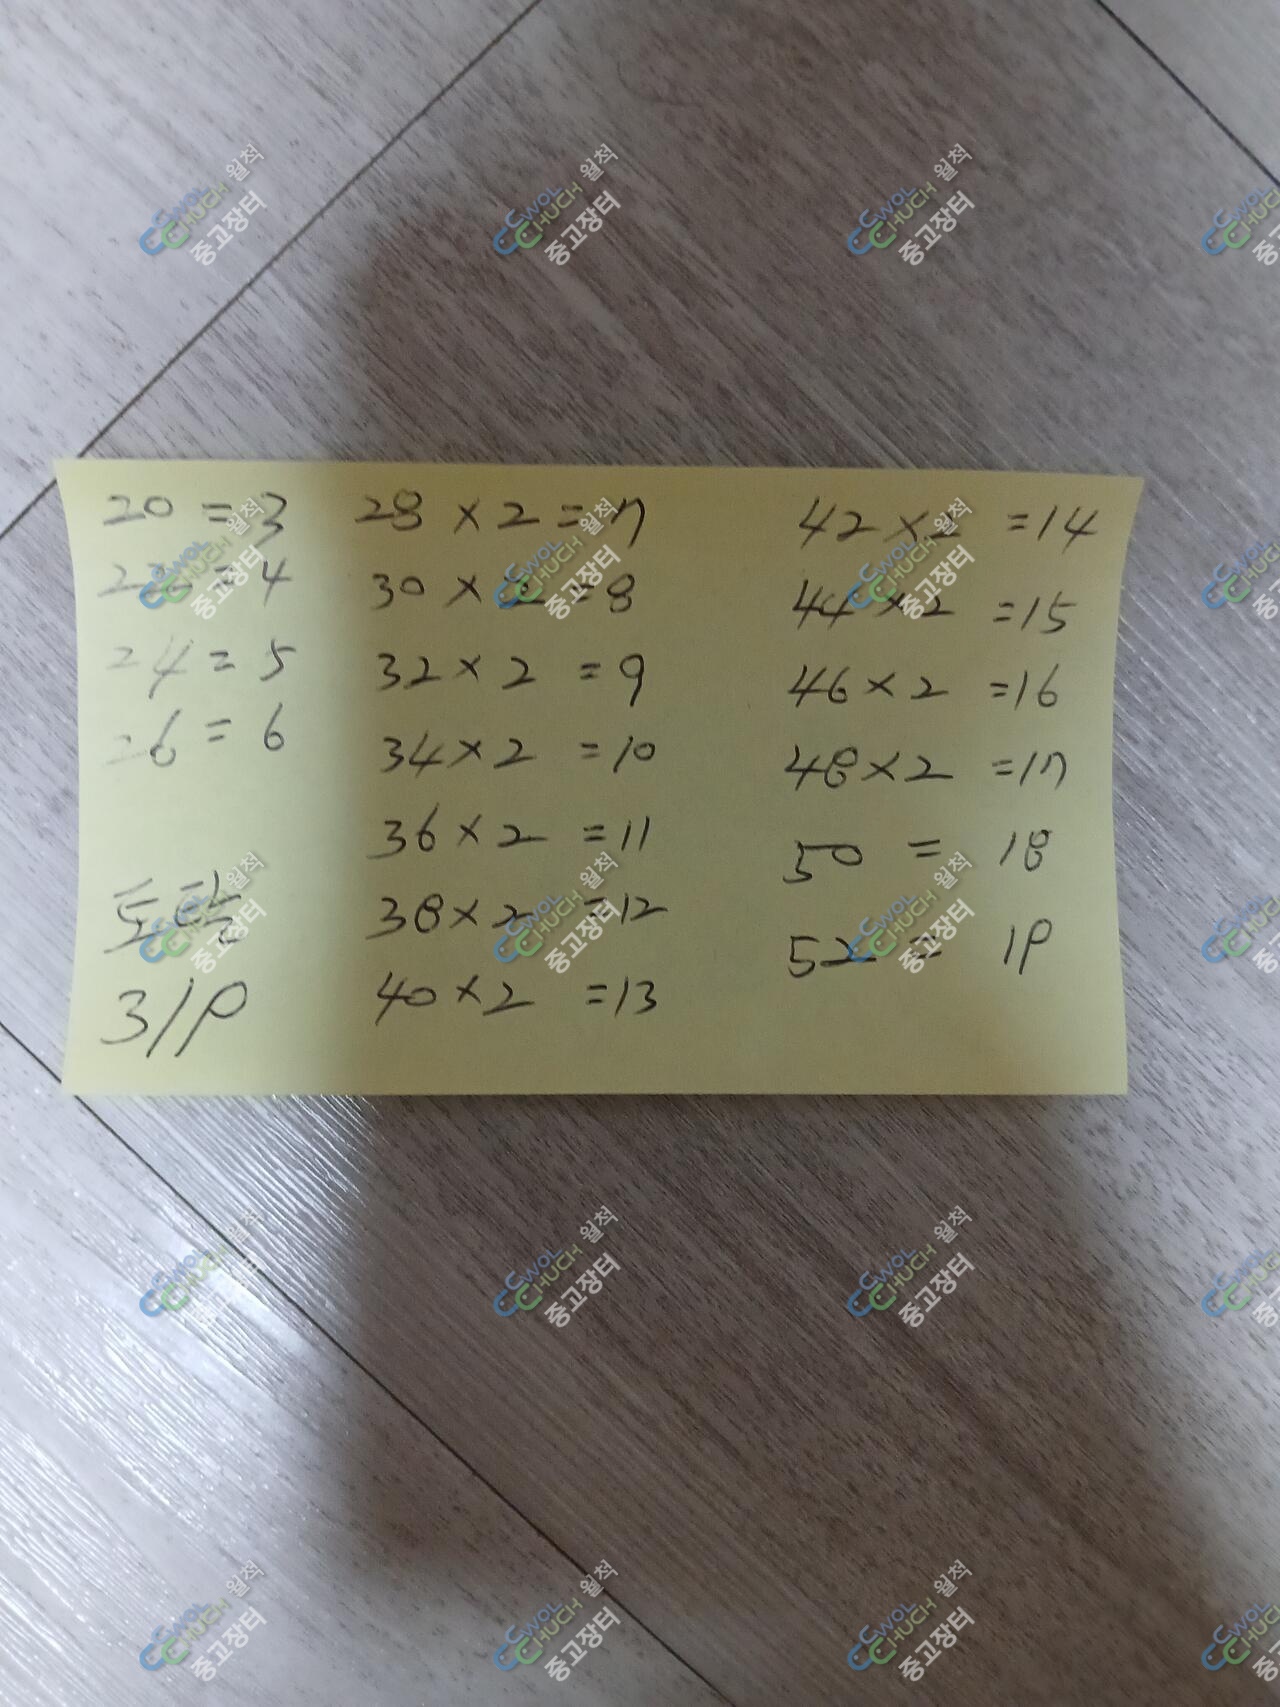 20 = 3
22 = 4
24 = 5
26 = 6
토탈
319
28 × 2 = 7
30 × 2 = 8
32 × 2 = 9
34 × 2 = 10
36 × 2 = 11
38 × 2 = 12
40 × 2 = 13
42 × 2 = 14
44 × 2 = 15
46 × 2 = 16
48 × 2 = 17
50 = 18
52 = 19
CWOL
CHUCH 월척
중고장터